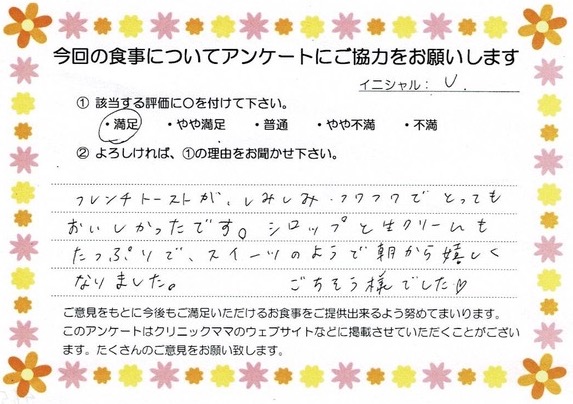 今回の食事についてアンケートにご協力をお願いします
イニシャル： U.
① 該当する評価に○を付けて下さい。
・満足 ・やや満足 ・普通 ・やや不満 ・不満
② よろしければ、①の理由をお聞かせ下さい。
フレンチトーストが、しみしみ・フワフワで とっても
おいしかったです。シロップと生クリームも
たっぷりで、スイーツのようで朝から嬉しく
なりました。 ごちそう様でした♡
ご意見をもとに今後もご満足いただけるお食事をご提供出来るよう努めてまいります。
このアンケートはクリニックママのウェブサイトなどに掲載させていただくことがござい
ます。たくさんのご意見をお願い致します。